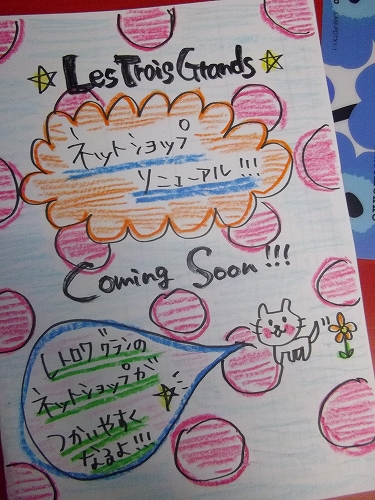 Les Trois Grands
ネットショップ
リニューアル!!!
Coming Soon!!!
レトロワグランの
ネットショップが
つかいやすく
なるよ!!!